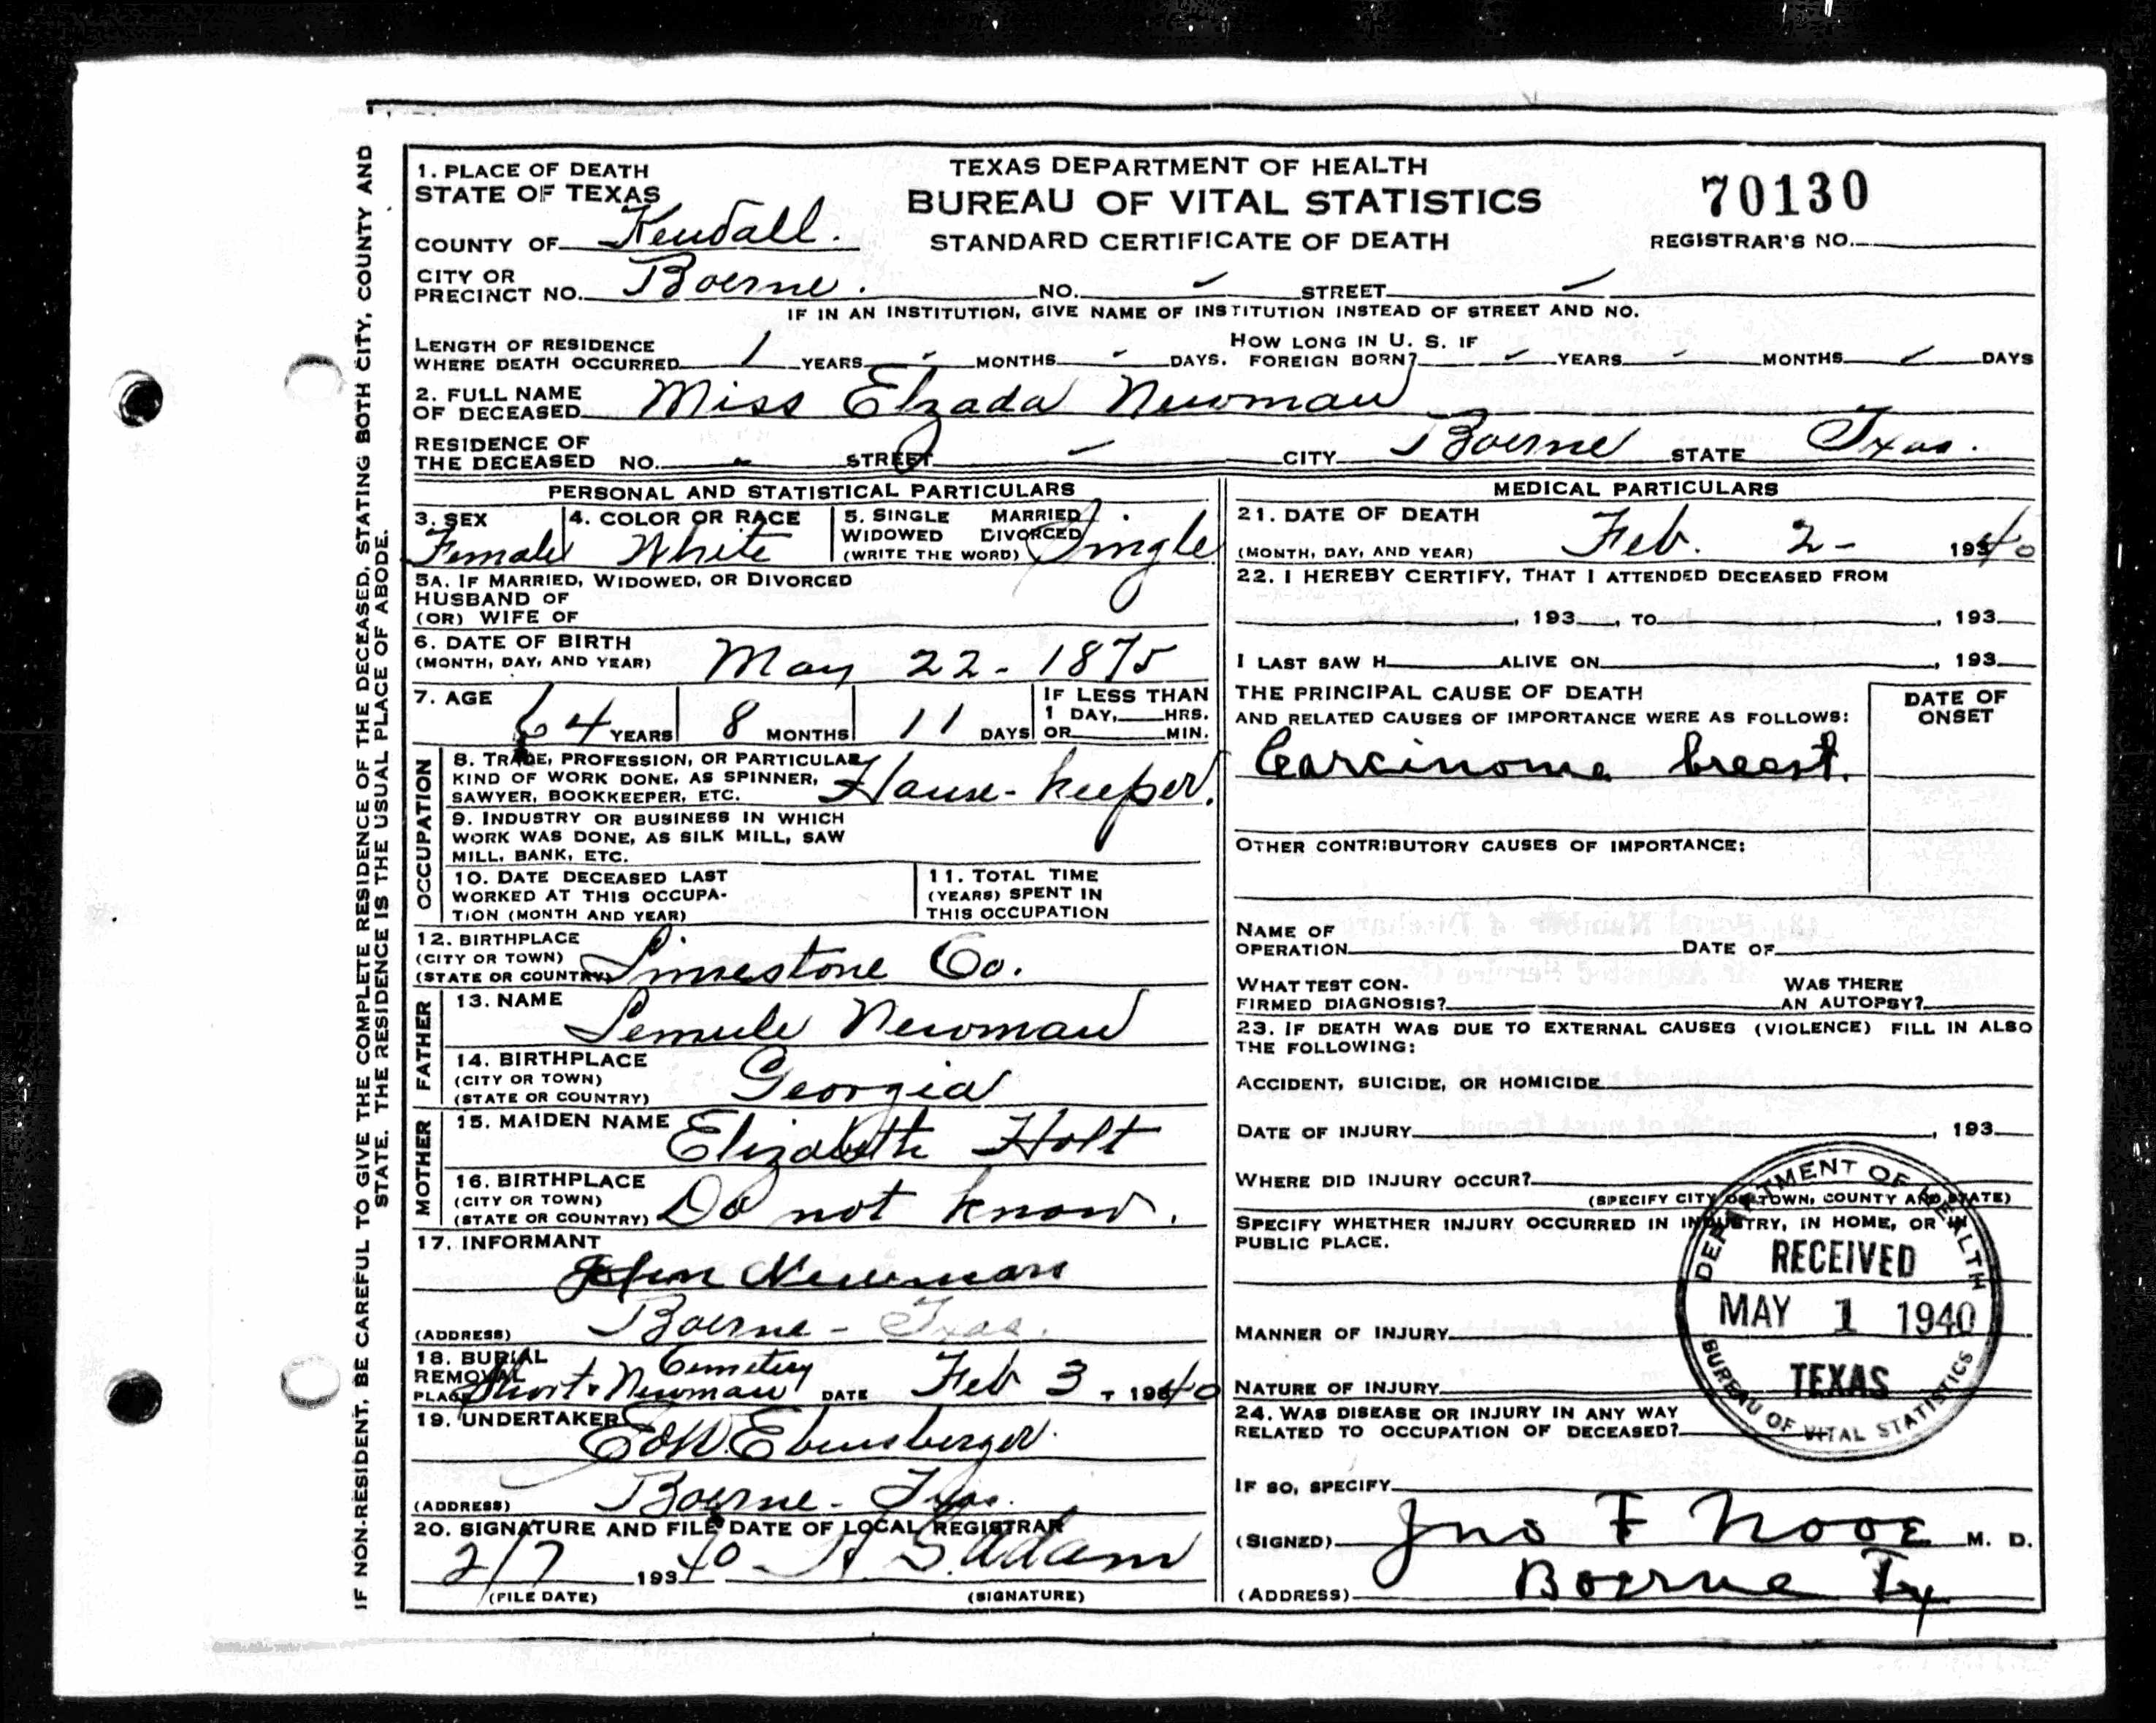 IF NON-RESIDENT, BE CAREFUL TO GIVE THE COMPLETE RESIDENCE OF THE DECEASED, STATING BOTH CITY, COUNTY AND
STATE. THE RESIDENCE IS THE USUAL PLACE OF ABODE.
1. PLACE OF DEATH
STATE OF TEXAS
COUNTY OF Kendall.
TEXAS DEPARTMENT OF HEALTH
BUREAU OF VITAL STATISTICS
STANDARD CERTIFICATE OF DEATH
70130
REGISTRAR'S NO.
CITY OR
PRECINCT NO. Boerne. NO. - STREET -
IF IN AN INSTITUTION, GIVE NAME OF INSTITUTION INSTEAD OF STREET AND NO.
LENGTH OF RESIDENCE
WHERE DEATH OCCURRED 1 YEARS - MONTHS - DAYS.
HOW LONG IN U. S. IF
FOREIGN BORN? - YEARS - MONTHS - DAYS
2. FULL NAME
OF DECEASED Miss Elzada Newman
RESIDENCE OF
THE DECEASED NO. - STREET - CITY Boerne STATE Texas.
PERSONAL AND STATISTICAL PARTICULARS
3. SEX
Female
4. COLOR OR RACE
White
5. SINGLE MARRIED
WIDOWED DIVORCED
(WRITE THE WORD) Single
5A. IF MARRIED, WIDOWED, OR DIVORCED
HUSBAND OF
(OR) WIFE OF
6. DATE OF BIRTH
(MONTH, DAY, AND YEAR) May 22 - 1875
7. AGE
64 YEARS 8 MONTHS 11 DAYS
IF LESS THAN
1 DAY, HRS.
OR MIN.
OCCUPATION
8. TRADE, PROFESSION, OR PARTICULAR
KIND OF WORK DONE, AS SPINNER,
SAWYER, BOOKKEEPER, ETC. House-keeper.
9. INDUSTRY OR BUSINESS IN WHICH
WORK WAS DONE, AS SILK MILL, SAW
MILL, BANK, ETC.
10. DATE DECEASED LAST
WORKED AT THIS OCCUPA-
TION (MONTH AND YEAR)
11. TOTAL TIME
(YEARS) SPENT IN
THIS OCCUPATION
12. BIRTHPLACE
(CITY OR TOWN)
(STATE OR COUNTRY) Limestone Co.
FATHER
13. NAME
Lemule Newman
14. BIRTHPLACE
(CITY OR TOWN)
(STATE OR COUNTRY) Georgia
MOTHER
15. MAIDEN NAME Elizabeth Holt
16. BIRTHPLACE
(CITY OR TOWN)
(STATE OR COUNTRY) Do not know.
17. INFORMANT
John Newman
(ADDRESS) Boerne - Texas.
18. BURIAL
REMOVAL Cemetery
PLACE Short & Newman DATE Feb 3, 1940
19. UNDERTAKER
Ed W. Ebensberger.
(ADDRESS) Boerne - Texas.
20. SIGNATURE AND FILE DATE OF LOCAL REGISTRAR
2/7 1940 H. S. Adam
(FILE DATE) (SIGNATURE)
MEDICAL PARTICULARS
21. DATE OF DEATH
(MONTH, DAY, AND YEAR) Feb. 2 - 1940
22. I HEREBY CERTIFY, THAT I ATTENDED DECEASED FROM
, 193 , TO , 193
I LAST SAW H ALIVE ON , 193
THE PRINCIPAL CAUSE OF DEATH
AND RELATED CAUSES OF IMPORTANCE WERE AS FOLLOWS:
DATE OF
ONSET
Carcinoma breast.
OTHER CONTRIBUTORY CAUSES OF IMPORTANCE:
NAME OF
OPERATION DATE OF
WHAT TEST CON-
FIRMED DIAGNOSIS?
WAS THERE
AN AUTOPSY?
23. IF DEATH WAS DUE TO EXTERNAL CAUSES (VIOLENCE) FILL IN ALSO
THE FOLLOWING:
ACCIDENT, SUICIDE, OR HOMICIDE
DATE OF INJURY , 193
WHERE DID INJURY OCCUR?
(SPECIFY CITY OR TOWN, COUNTY AND STATE)
SPECIFY WHETHER INJURY OCCURRED IN INDUSTRY, IN HOME, OR IN
PUBLIC PLACE.
MANNER OF INJURY
NATURE OF INJURY
24. WAS DISEASE OR INJURY IN ANY WAY
RELATED TO OCCUPATION OF DECEASED?
IF SO, SPECIFY
(SIGNED) Jno F Nooe M. D.
(ADDRESS) Boerne Tx
DEPARTMENT OF HEALTH
RECEIVED
MAY 1 1940
TEXAS
BUREAU OF VITAL STATISTICS